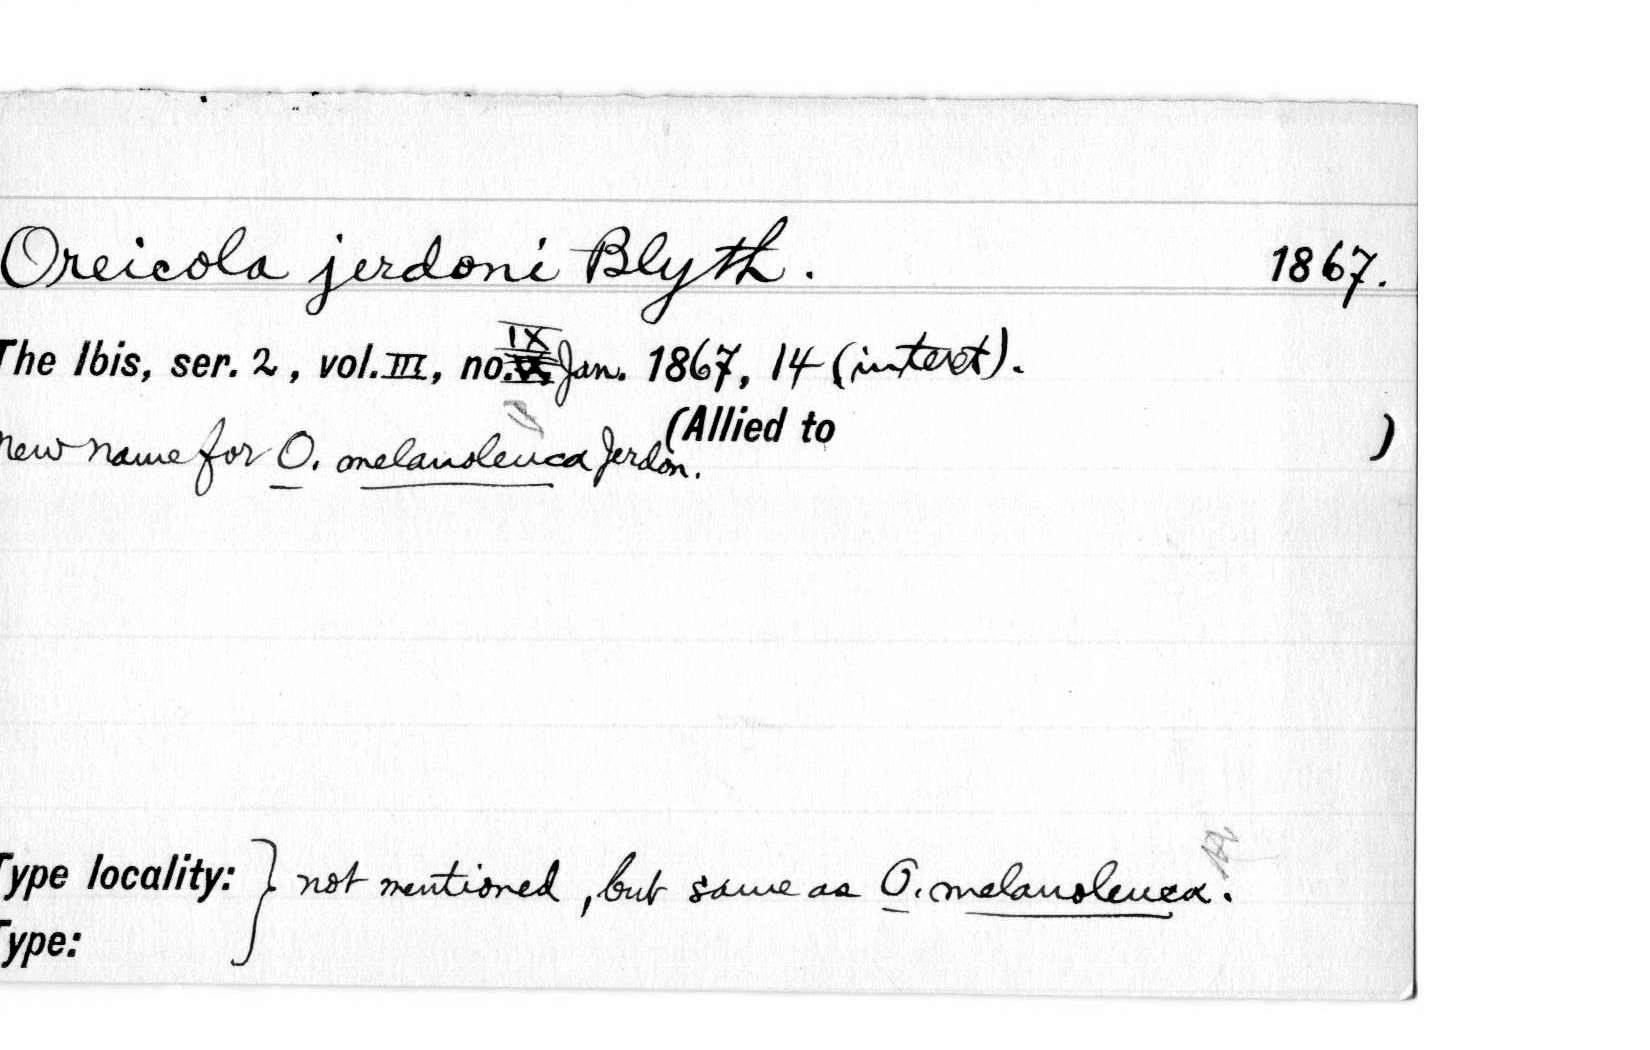 Oreicola jerdoni Blyth. 1867.
The Ibis, ser. 2, vol. III, no. IX Jan. 1867, 14 (in text).
(Allied to )
new name for O. melanoleuca Jerdon.
Type locality: } not mentioned, but same as O. melanoleuca.
Type: